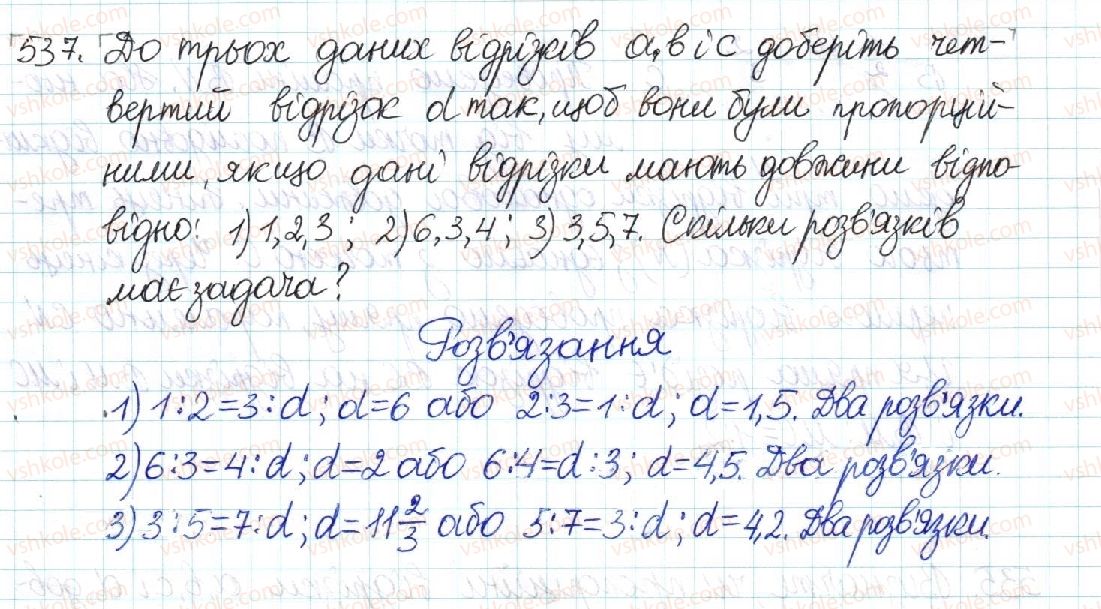 537. До трьох даних відрізків a, b і c доберіть чет-
вертий відрізок d так, щоб вони були пропорцій-
ними, якщо дані відрізки мають довжини відпо
відно: 1) 1, 2, 3; 2) 6, 3, 4; 3) 3, 5, 7. Скільки розв'язків
має задача?
Розв'язання
1) 1:2=3:d; d=6 або 2:3=1:d; d=1,5. Два розв'язки.
2) 6:3=4:d; d=2 або 6:4=d:3; d=4,5. Два розв'язки.
3) 3:5=7:d; d=11 2/3 або 5:7=3:d; d=4,2. Два розв'язки.